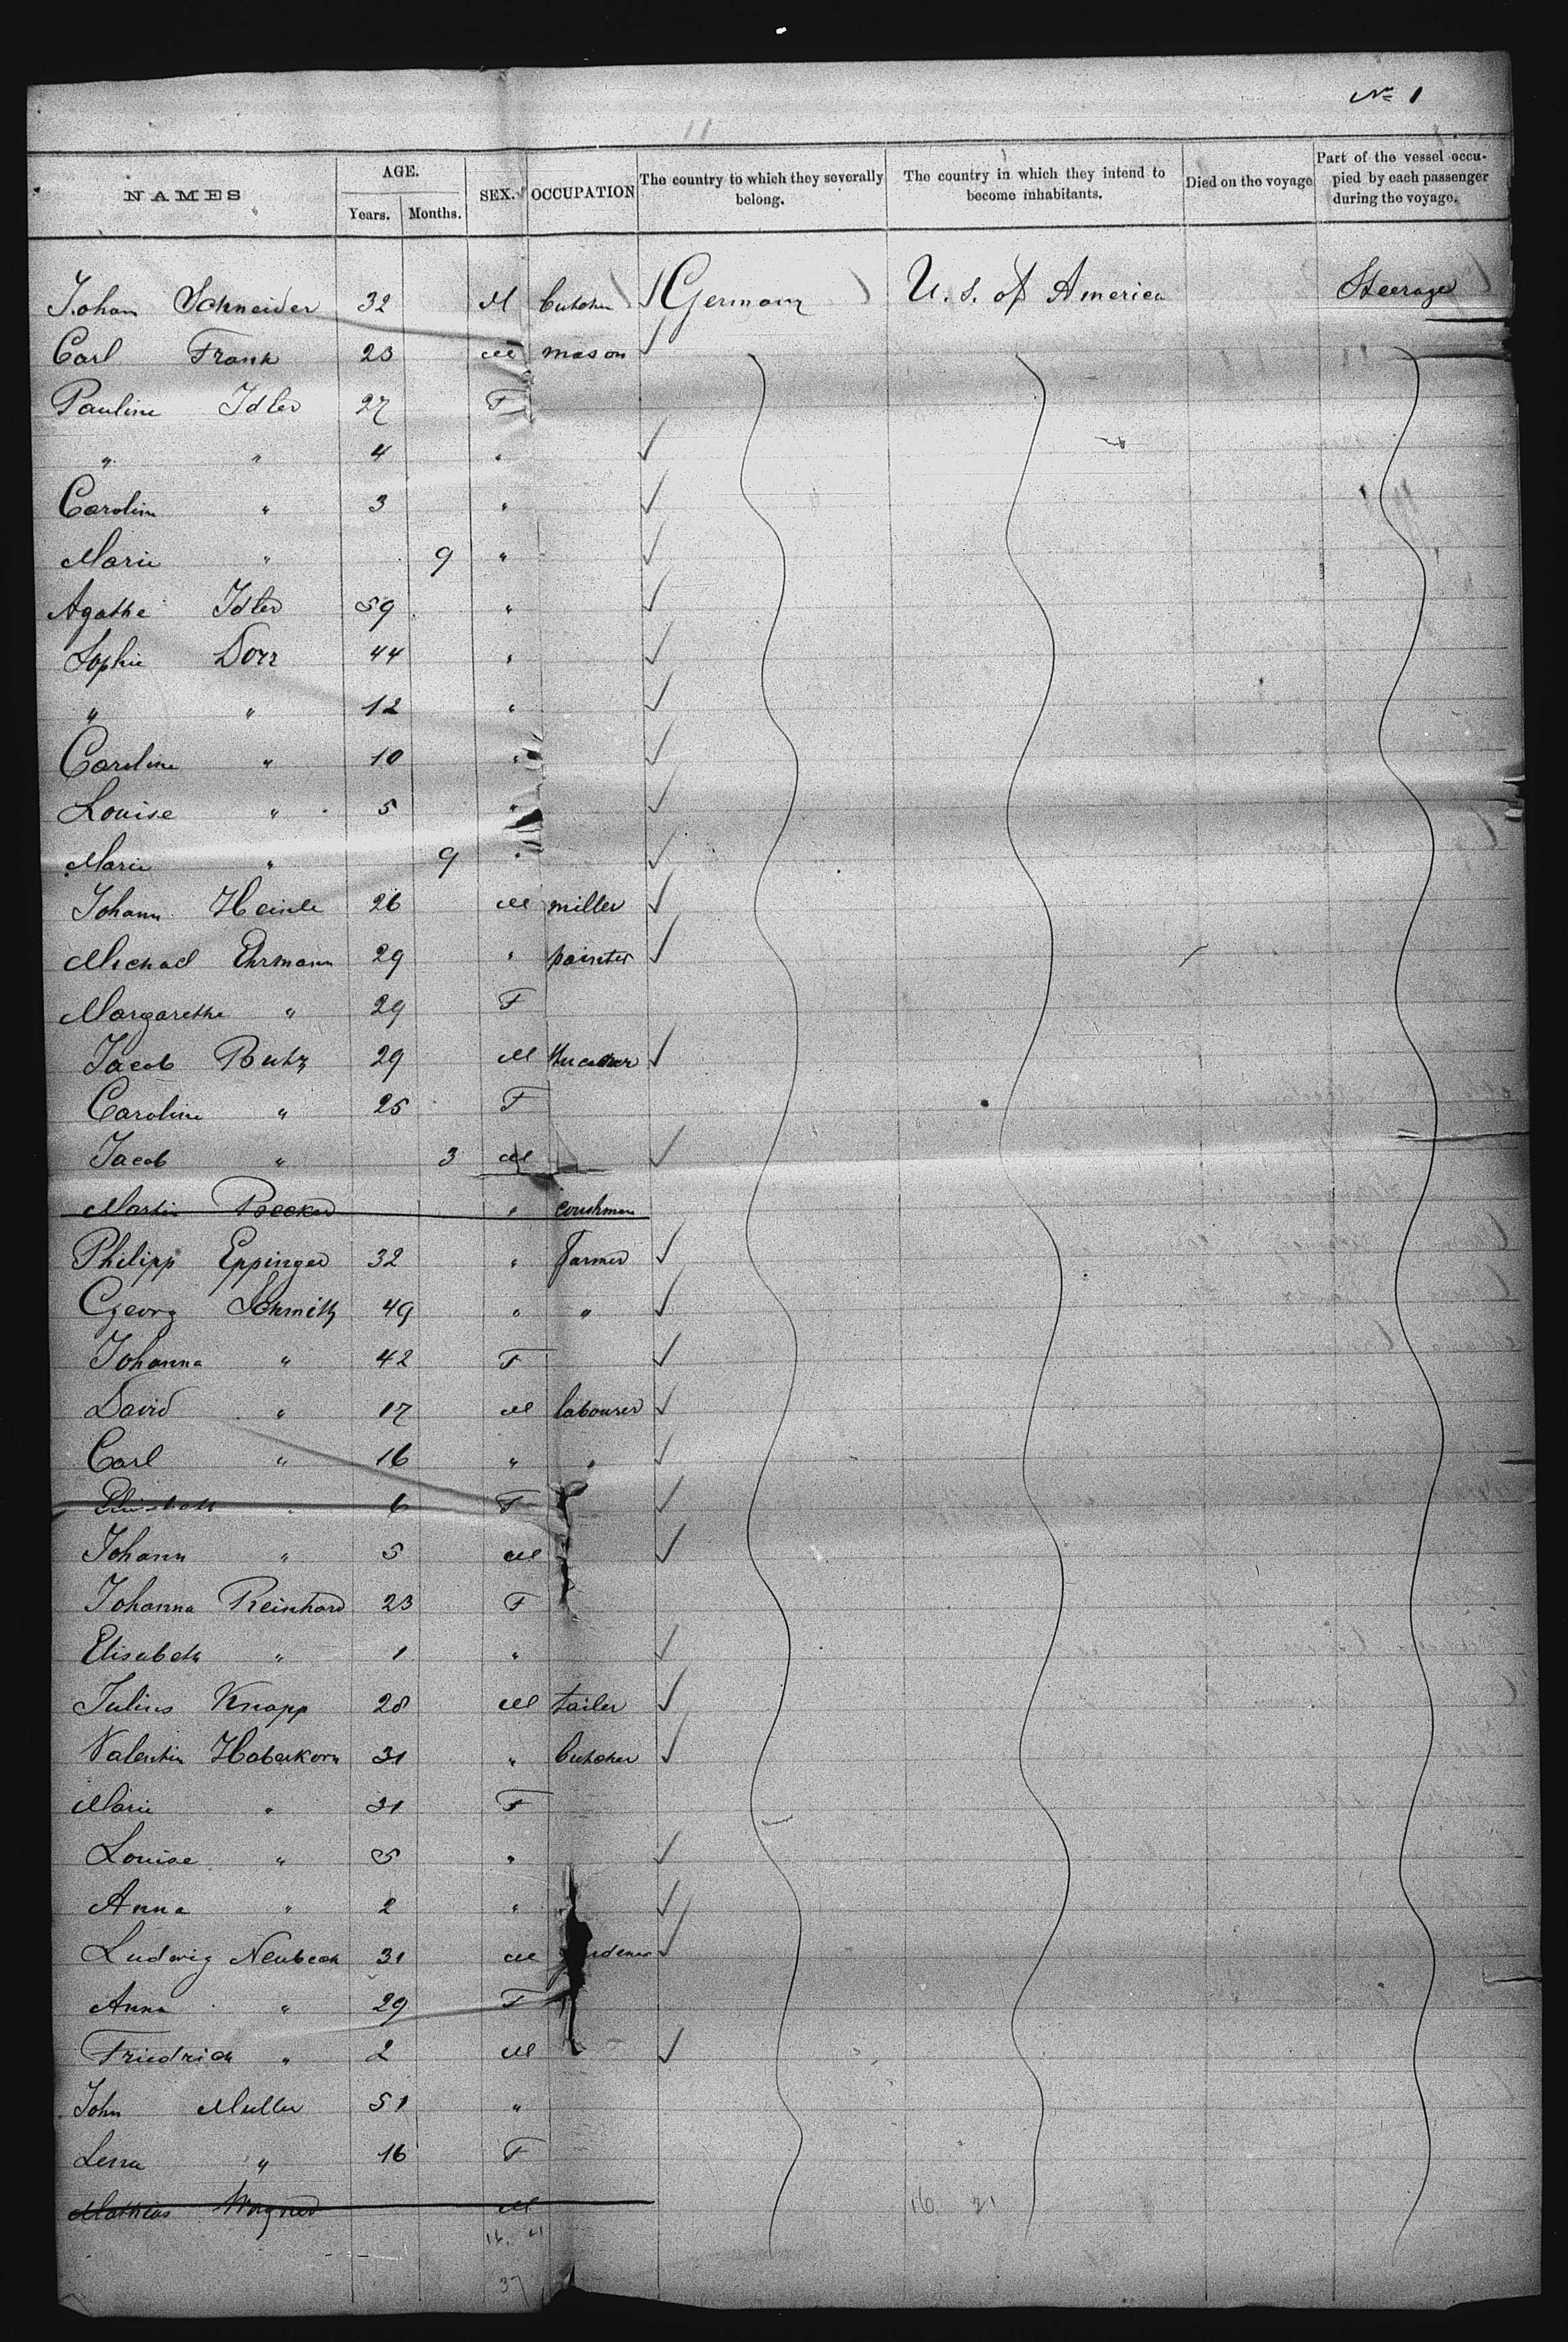 № 1
NAMES AGE. Years. Months. SEX. OCCUPATION The country to which they severally belong. The country in which they intend to become inhabitants. Died on the voyage Part of the vessel occupied by each passenger during the voyage.
Johan Schneider 32 M butcher Germany U. S. of America Steerage
Carl Frank 23 M mason
Pauline Idler 27 F
" " 4 "
Carolin " 3 "
Marie " 9 "
Agathe Idler 59 "
Sophie Dorr 44 "
" " 12 "
Caroline " 10 "
Louise " 5 "
Marie " 9 "
Johann Heinle 26 M miller
Michael Ehrmann 29 " painter
Margarethe " 29 F
Jacob 29 M
Caroline " 25 F
Jacob " 3 M
Martin Becker " coushman
Philipp Eppinger 32 " farmer
Georg Schmitz 49 " "
Johanna " 42 F
David " 17 M labourer
Carl " 16 " "
Elisabeth " 6 F
Johann " 5 M
Johanna Reinhard 23 F
Elisabeth " 1 "
Julius Knapp 28 M tailer
Valentin Haberkorn 31 " butcher
Marie " 31 F
Louise " 5 "
Anna " 2 "
Ludwig Neubeck 31 M gardener
Anna " 29 F
Friedrich " 2 M
John Muller 51 "
Lena " 16 F
Mathias Wagner M
16 21
16 21
37